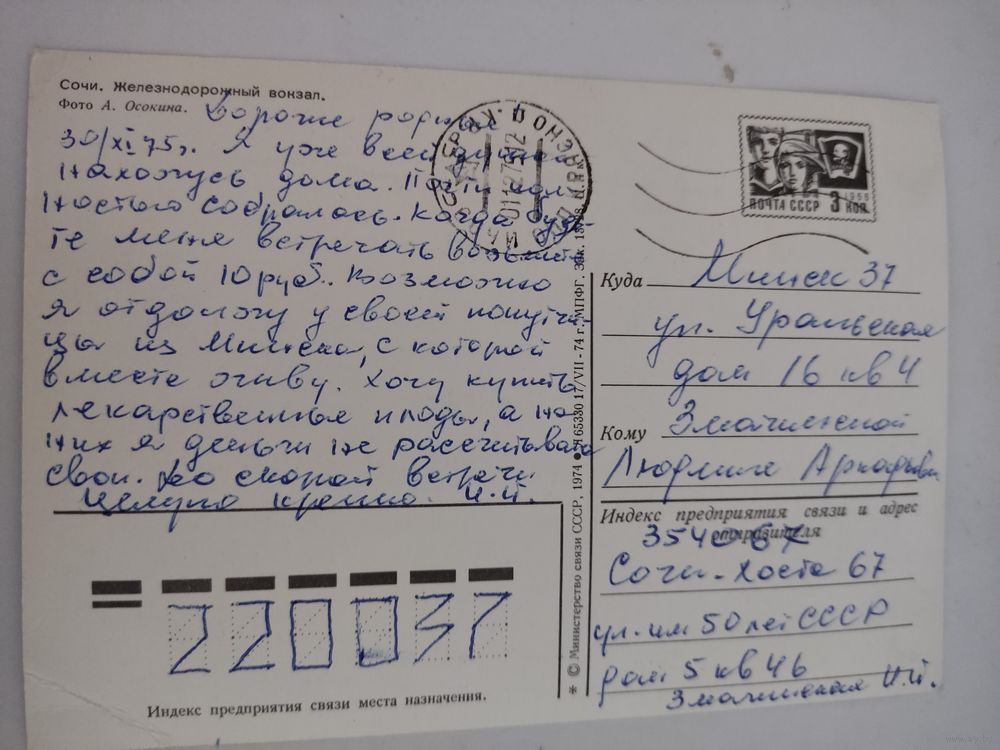 Сочи. Железнодорожный вокзал.
Фото А. Осокина.
Дорогие родные
30/XI 75г. Я уже всей душой
нахожусь дома. Почти пол
ностью собралась. Когда буде
те меня встречать возьмите
с собой 10 руб. Возможно
я отдолжу у своей попутчи-
цы из Минска, с которой
вместе живу. Хочу купить
лекарственные плоды, а на
них я деньги не рассчитывала
свои. До скорой встречи
Целую крепко. И.И.
ПОЧТА СССР 3 КОП
1958
Куда Минск 37
ул. Уральская
дом 16 кв 4
Кому
Людмиле Аркадьевн
Индекс предприятия связи и адрес
отправителя
354067
Сочи-Хоста 67
ул. им 50 лет СССР
дом 5 кв 46
И.И.
220037
Индекс предприятия связи места назначения.
* © Министерство связи СССР, 1974 ● Н 65330 17/VII-74 г. МПФГ. Зак.